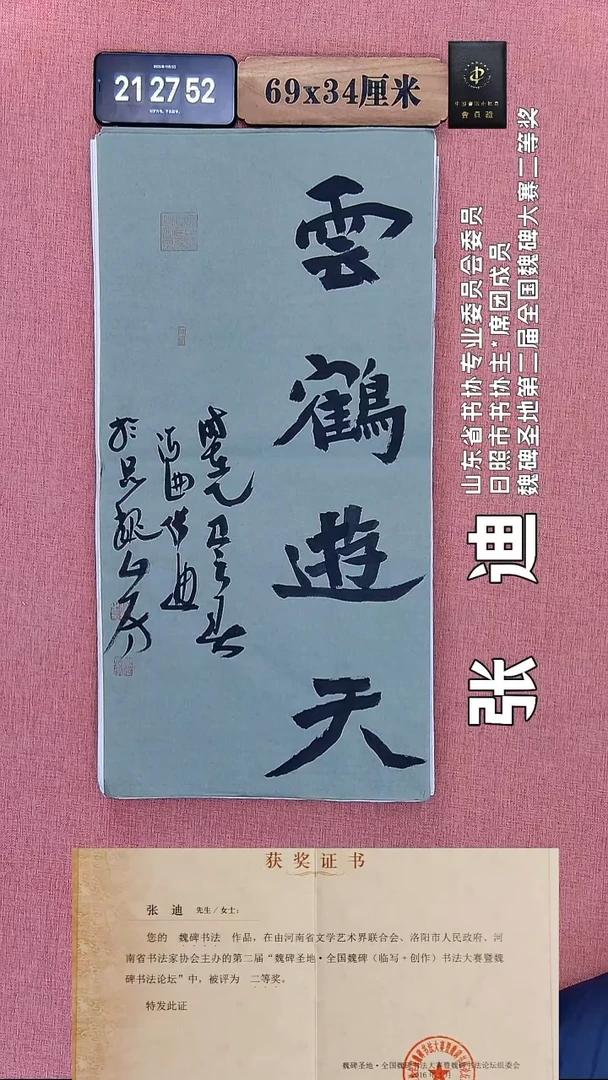 21 27 52
69x34厘米
雲鶴遊天
山东省书协专业委员会委员
日照市书协主*席团成员
魏碑圣地第二届全国魏碑大赛二等奖
张 迪
获奖证书
张 迪 先生/女士:
您的 魏碑书法 作品，在由河南省文学艺术界联合会、洛阳市人民政府、河
南省书法家协会主办的第二届“魏碑圣地·全国魏碑（临写+创作）书法大赛暨魏
碑书法论坛”中，被评为 二等奖。
特发此证
魏碑圣地·全国魏碑书法大赛暨魏碑书法论坛组委会